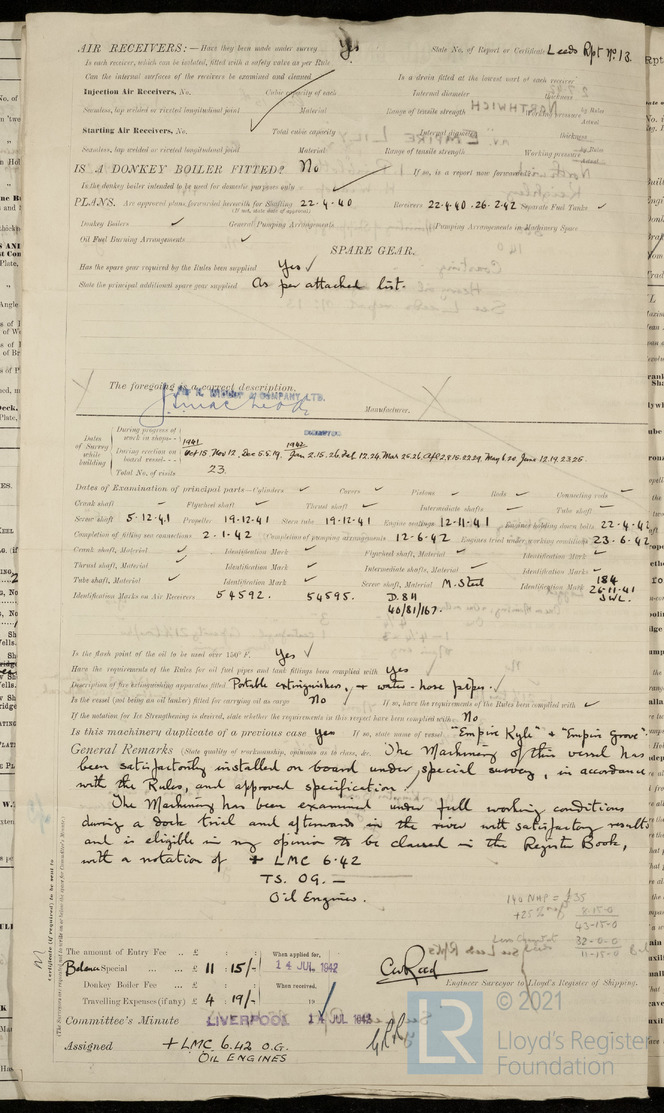 AIR RECEIVERS:— Have they been made under survey Yes State No. of Report or Certificate Leeds Rpt No 13.
Is each receiver, which can be isolated, fitted with a safety valve as per Rule
Can the internal surfaces of the receivers be examined and cleaned Is a drain fitted at the lowest part of each receiver
Injection Air Receivers, No. Cubic capacity of each Internal diameter thickness
Seamless, lap welded or riveted longitudinal joint Material Range of tensile strength Working pressure by Rules Actual
Starting Air Receivers, No. Total cubic capacity Internal diameter thickness
Seamless, lap welded or riveted longitudinal joint Material Range of tensile strength Working pressure by Rules Actual
IS A DONKEY BOILER FITTED? No If so, is a report now forwarded
Is the donkey boiler intended to be used for domestic purposes only
PLANS. Are approved plans forwarded herewith for Shafting 22.4.40 Receivers 22.4.40.26.2.42 Separate Fuel Tanks ✓
(If not, state date of approval)
Donkey Boilers ✓ General Pumping Arrangements Pumping Arrangements in Machinery Space
Oil Fuel Burning Arrangements ✓
SPARE GEAR.
Has the spare gear required by the Rules been supplied Yes ✓
State the principal additional spare gear supplied As per attached list.
The foregoing is a correct description,
COMPANY, LTD.
Manufacturer.
Dates of Survey while building
During progress of work in shops - -
1941 1942
During erection on board vessel - - - Oct 15 Nov 12, Dec 5.5.19, Jan 2.15.26. Feb 12.24, Mar 25.26, Apl 2.9.15.22.29, May 6.20, June 12.19.23.25.
Total No. of visits 23.
Dates of Examination of principal parts—Cylinders ✓ Covers ✓ Pistons ✓ Rods ✓ Connecting rods ✓
Crank shaft ✓ Flywheel shaft ✓ Thrust shaft ✓ Intermediate shafts ✓ Tube shaft ✓
Screw shaft 5.12.41 Propeller 19.12.41 Stern tube 19.12.41 Engine seatings 12.11.41 Engines holding down bolts 22.4.42
Completion of fitting sea connections 2.1.42 Completion of pumping arrangements 12.6.42 Engines tried under working conditions 23.6.42
Crank shaft, Material ✓ Identification Mark ✓ Flywheel shaft, Material ✓ Identification Mark ✓
Thrust shaft, Material ✓ Identification Mark ✓ Intermediate shafts, Material ✓ Identification Marks ✓
Tube shaft, Material ✓ Identification Mark ✓ Screw shaft, Material M.Steel Identification Mark 184
26.11.41
S.W.L.
Identification Marks on Air Receivers 54592. 54595. D.811
40/81/167.
Is the flash point of the oil to be used over 150°F. Yes ✓
Have the requirements of the Rules for oil fuel pipes and tank fittings been complied with Yes
Description of fire extinguishing apparatus fitted Portable extinguishers, + water-hose pipes. ✓
Is the vessel (not being an oil tanker) fitted for carrying oil as cargo No If so, have the requirements of the Rules been complied with ✓
If the notation for Ice Strengthening is desired, state whether the requirements in this respect have been complied with No
Is this machinery duplicate of a previous case Yes If so, state name of vessel "Empire Kyle" & "Empire Grove".
General Remarks (State quality of workmanship, opinions as to class, &c. The Machinery of this vessel has
been satisfactorily installed on board under special survey, in accordance
with the Rules, and approved specification.
The Machinery has been examined under full working conditions
during a dock trial and afterwards in the river with satisfactory results
and is eligible in my opinion to be classed in the Register Book,
with a notation of + LMC 6.42
TS. OG. —
Oil Engines.
140 NHP = £35
+25%
8-15-0
43-15-0
32-0-0
11-15-0
The amount of Entry Fee .. £ : : When applied for,
Balance Special ... ... £ 11 . 15/- 14 JUL 1942
Donkey Boiler Fee ... £ : : When received,
Travelling Expenses (if any) £ 4 . 19/- 19
Engineer Surveyor to Lloyd's Register of Shipping.
Committee's Minute LIVERPOOL 14 JUL 1942
Assigned + LMC 6.42 O.G.
OIL ENGINES
Certificate (if required) to be sent to
© 2021
LR
Lloyd's Register
Foundation